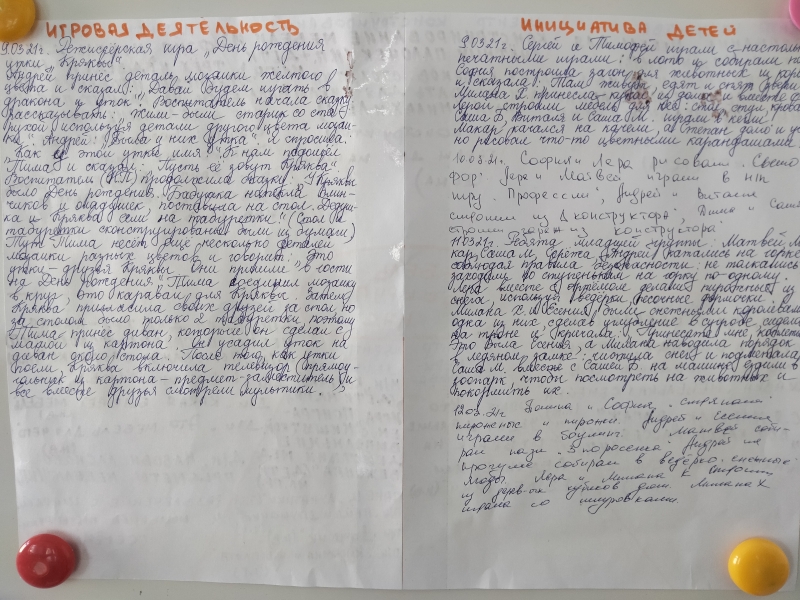 ИГРОВАЯ ДЕЯТЕЛЬНОСТЬ
9.03.21г. Режиссёрская игра „День рождения
утки „Кряквы“
Андрей принёс детали мозаики желтого
цвета и сказал: „Давай будем играть в
дракона и уток“. Воспитатель начала сказку
рассказывать: „Жили-были старик со ста-
рухой используя детали другого цвета мозаи-
ки“. Андрей: „Была у них утка“. Я спросила:
„Как этой утки имя?“ К нам подошёл
Тима и сказал: „Пусть её зовут Кряква“
Воспитатель продолжила сказку: „У Кряквы
было День рождения. Бабушка напекла блин-
чиков и оладушек, поставила на стол. Дедуш-
ка и Кряква сели на табуретки“ (Стол и
табуретки сконструированы были из бумаги)
Тут Тима несёт ещё несколько деталей
мозаики разных цветов и говорит: „Это
утки-друзья Кряквы. Они пришли в гости
на День рождения“. Тима соединил мозаику
в круг, это каравай для Кряквы. Затем
Кряква пригласила своих друзей за стол но
за столом было только 2 табуретки, поэтому
Тима принёс диван, который он сделал с
мамой из картона. Он усадил уток на
диван около стола. После того как утки
поели, Кряква включила телевизор (прямоу-
гольник из картона - предмет-заместитель) и
все вместе друзья смотрели мультики.
ИНИЦИАТИВА ДЕТЕЙ
9.03.21г. Сергей и Тимофей играли с настольно
печатными играми: в лото и собирали
София построила загон для животных и
и сказала: „Там живут, едят и спят
Милана Х. принесла домой и вместе с
Лерой строили мебель для неё: стол, стул,
Саша Б., Виталя и Саша М. играли в кегли
Макар качался на качели, а Степан долго и
но рисовал что-то цветными карандашами.
10.03.21г. София и Лера рисовали. Свето
фор. Лера и Матвей играли в н/п
игру „Профессии“, Андрей и Виталя
строили из Д конструктора, Дима и Саша
строили из конструктора.
11.03.21г. Ребята младшей группы: Матвей, Ма
кар, Саша М., Серёжа, Андрей катались на горке
соблюдая правила безопасности: не толкались
заходили по ступенькам на горку по-одному.
Лера вместе с Артёмом делали пирожных из
снега, используя ведёрки, песочные формочки.
Милана Х. и Есения были снежными королевами
одна из них сделав углубление в сугробе сидела
на троне и кричала: „Принесите мне
Это была Есения, а Милана наводила порядок
в ледяном замке: чистила снег и подметала.
Саша М. вместе с Сашей Б. на машине ездили в
зоопарк, чтобы посмотреть на животных и
покормить их.
12.03.21г. и София стряпали
пирожных и пирожки. Андрей и Есения
играли в боулинг. Матвей соби-
рал пазл „3 поросёнка“. Андрей на
прогулке собирал в ведёрко снежные
ягоды. Лера и Милана К. строили
из дерев-ых кубиков дом. Милана Х.
играла со шнуровками.